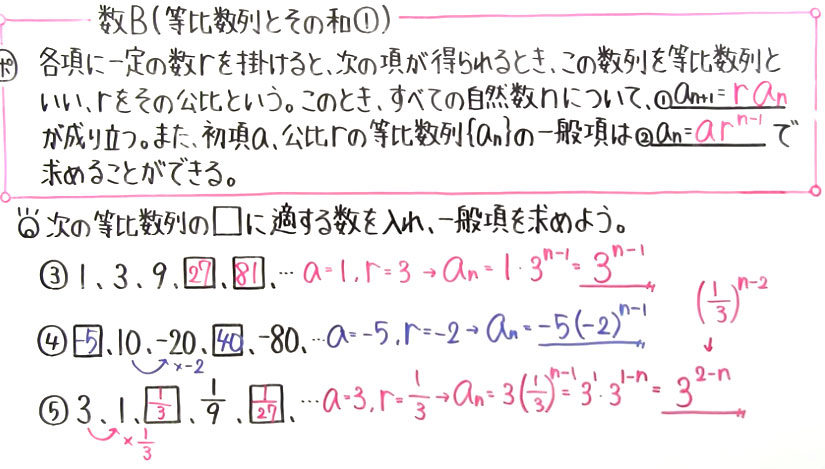 数B(等比数列とその和①)
ポ 各項に一定の数rを掛けると、次の項が得られるとき、この数列を等比数列と
いい、rをその公比という。このとき、すべての自然数nについて、①aₙ₊₁=raₙ
が成り立つ。また、初項a、公比rの等比数列{aₙ}の一般項は②aₙ=arⁿ⁻¹で
求めることができる。
次の等比数列の□に適する数を入れ、一般項を求めよう。
③ 1、3、9、27、81、… a=1,r=3→aₙ=1·3ⁿ⁻¹=3ⁿ⁻¹
(1/3)ⁿ⁻²
↓
④ -5、10、-20、40、-80、… a=-5,r=-2→aₙ=-5(-2)ⁿ⁻¹
×-2
⑤ 3、1、1/3、1/9、1/27、… a=3,r=1/3→aₙ=3(1/3)ⁿ⁻¹=3¹·3¹⁻ⁿ=3²⁻ⁿ
×1/3